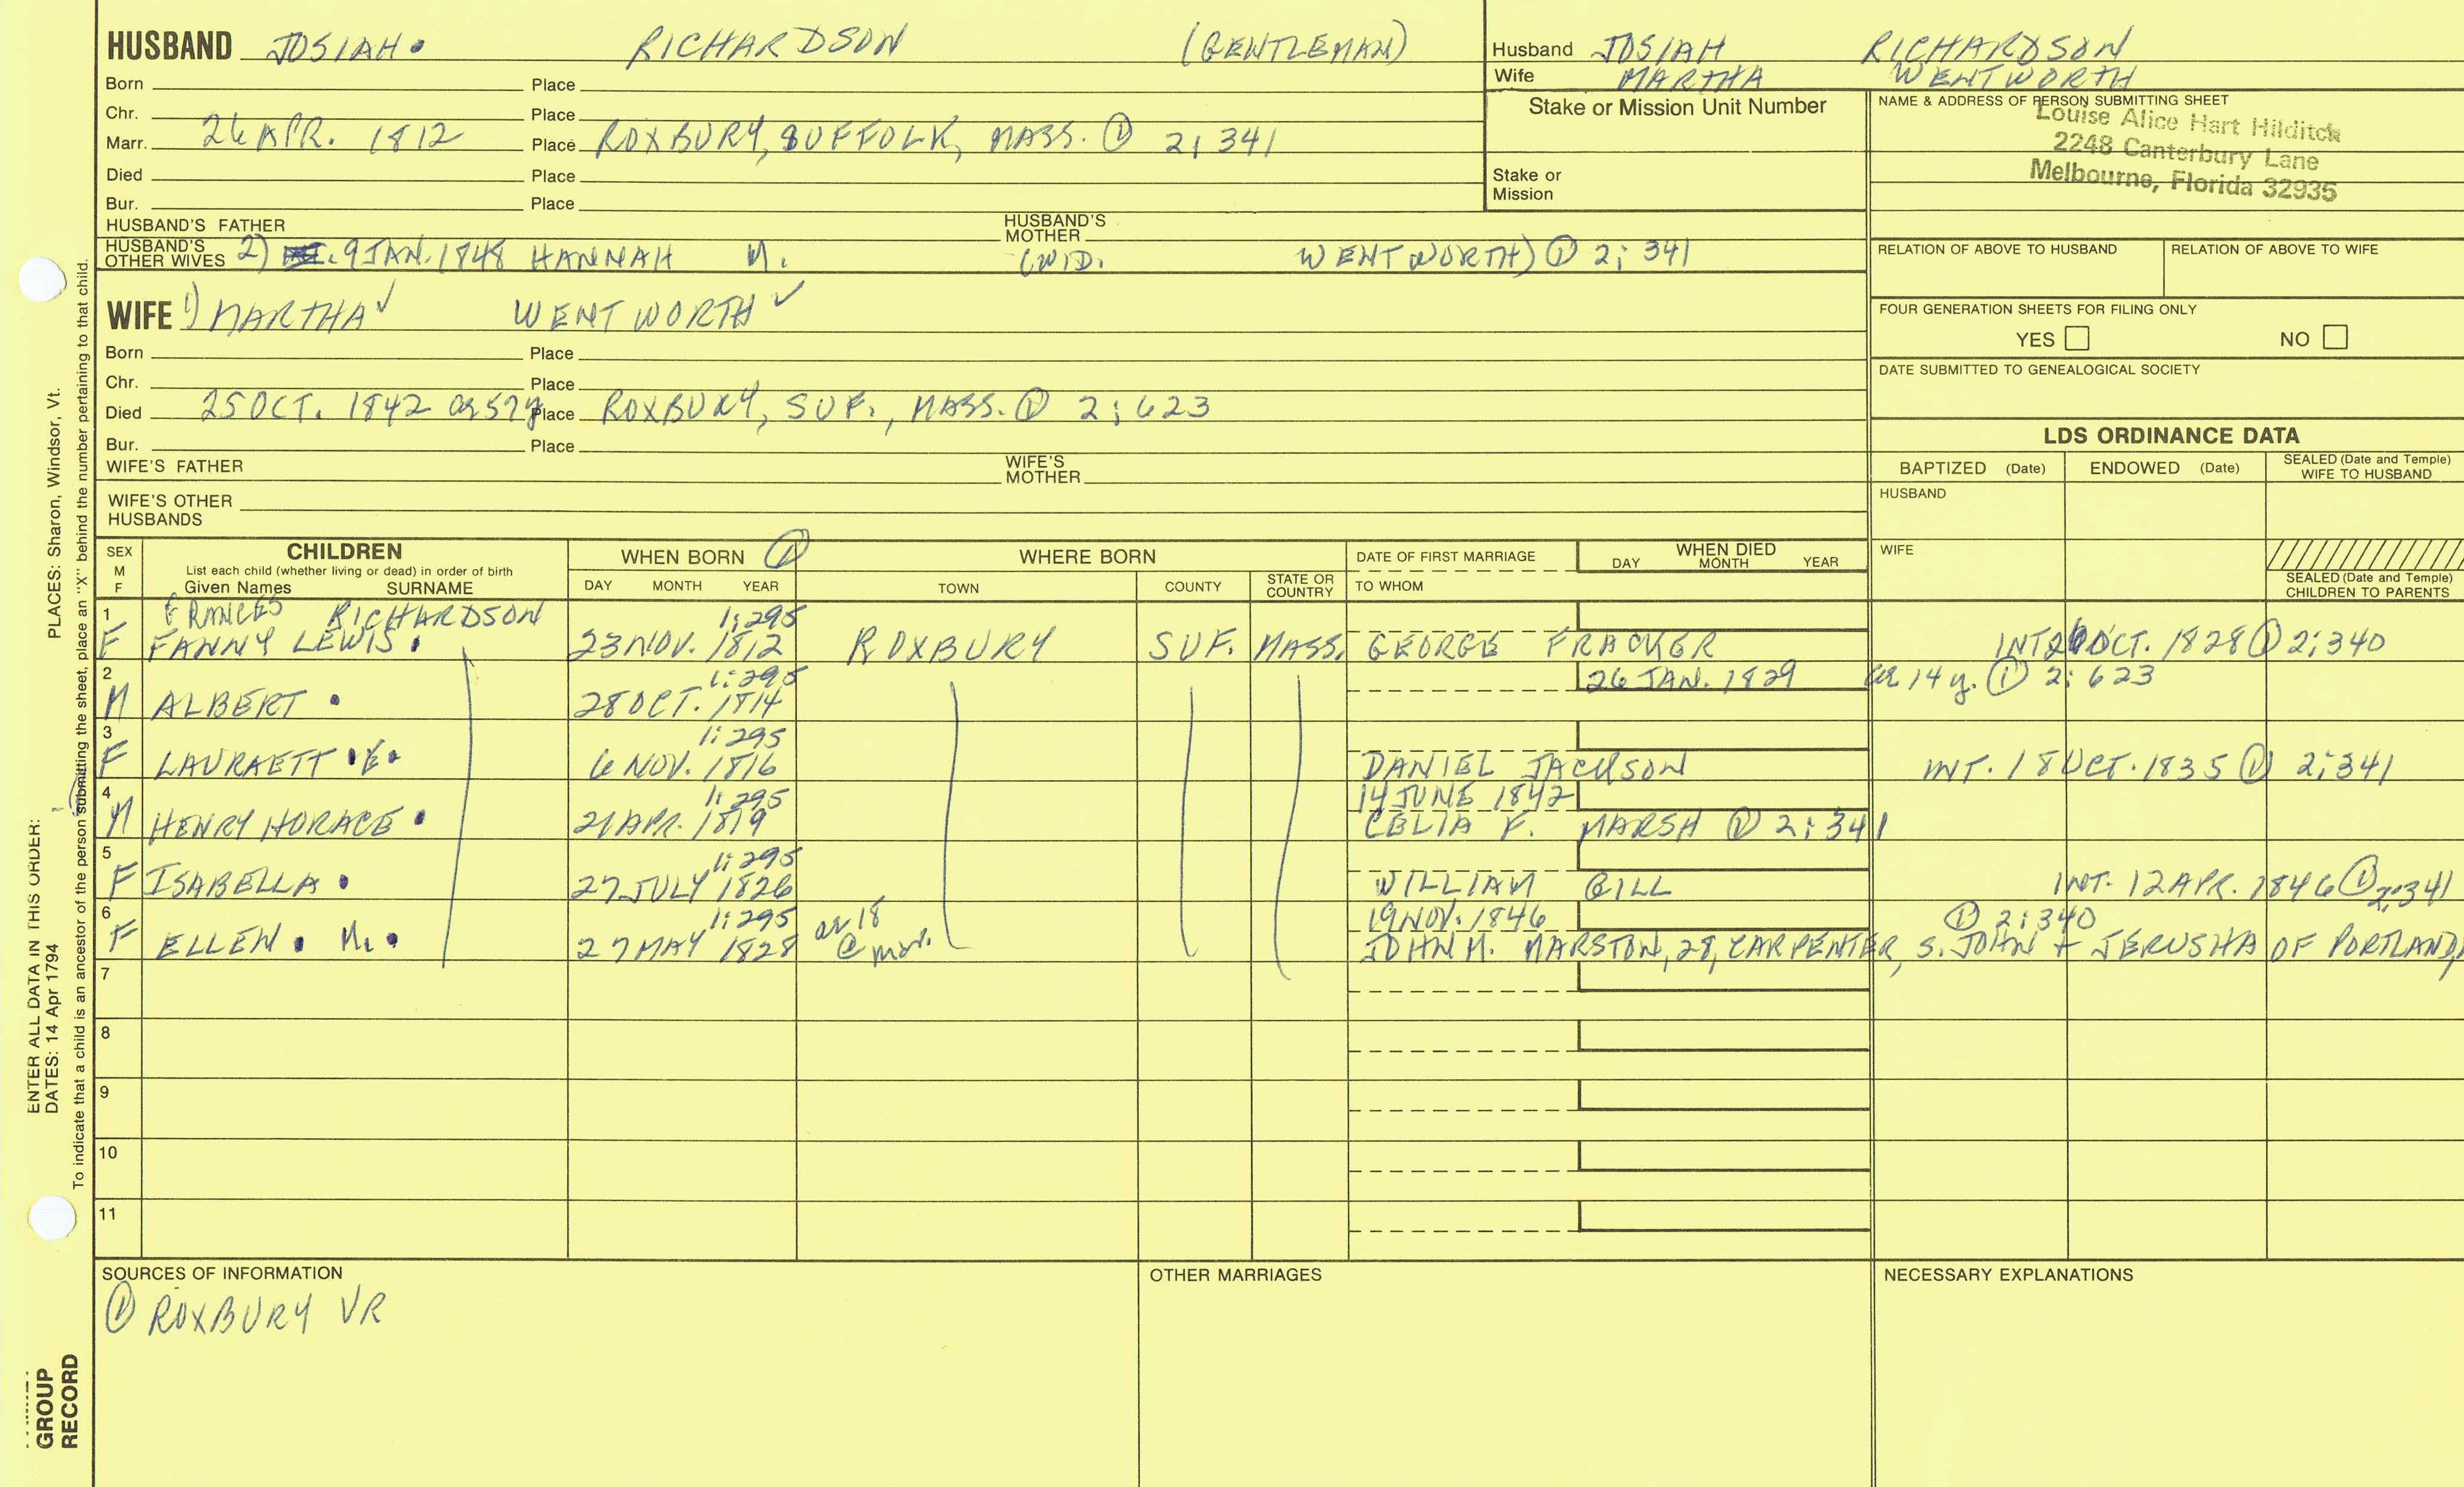 HUSBAND JOSIAH RICHARDSON (GENTLEMAN)
Born Place
Chr. Place
Marr. 26 APR. 1812 Place ROXBURY, SUFFOLK, MASS. ① 2:341
Died Place
Bur. Place
HUSBAND'S FATHER HUSBAND'S MOTHER
HUSBAND'S OTHER WIVES 2) 9 JAN. 1848 HANNAH M. (WID. WENTWORTH) ① 2:341
WIFE 1) MARTHA ✓ WENTWORTH ✓
Born Place
Chr. Place
Died 25 OCT. 1842 ae 57y Place ROXBURY, SUF., MASS. ① 2:623
Bur. Place
WIFE'S FATHER WIFE'S MOTHER
WIFE'S OTHER HUSBANDS
Husband JOSIAH RICHARDSON
Wife MARTHA WENTWORTH
Stake or Mission Unit Number
Stake or Mission
NAME & ADDRESS OF PERSON SUBMITTING SHEET
Louise Alice Hart Hilditch
2248 Canterbury Lane
Melbourne, Florida 32935
RELATION OF ABOVE TO HUSBAND RELATION OF ABOVE TO WIFE
FOUR GENERATION SHEETS FOR FILING ONLY
YES NO
DATE SUBMITTED TO GENEALOGICAL SOCIETY
LDS ORDINANCE DATA
BAPTIZED (Date) ENDOWED (Date) SEALED (Date and Temple) WIFE TO HUSBAND
HUSBAND
WIFE
SEALED (Date and Temple) CHILDREN TO PARENTS
SEX M F
CHILDREN
List each child (whether living or dead) in order of birth
Given Names SURNAME
WHEN BORN ①
DAY MONTH YEAR
WHERE BORN
TOWN COUNTY STATE OR COUNTRY
DATE OF FIRST MARRIAGE
TO WHOM
WHEN DIED
DAY MONTH YEAR
1 FRANCES RICHARDSON 1:295
F FANNY LEWIS 23 NOV. 1812 ROXBURY SUF. MASS. GEORGE FRACKER INT. OCT. 1828 ① 2:340
2 1:295 26 JAN. 1829 ae 14 y. ① 2:623
M ALBERT 28 OCT. 1814
3 1:295
F LAURAETT E. 6 NOV. 1816 DANIEL JACKSON INT. 18 OCT. 1835 ① 2:341
4 1:295 14 JUNE 1842
M HENRY HORACE 21 APR. 1819 CELIA F. MARSH ① 2:341
5 1:295
F ISABELLA 27 JULY 1826 WILLIAM GILL INT. 12 APR. 1846 ① 2:341
6 1:295 ae 18 19 NOV. 1846 ① 2:340
F ELLEN M. 27 MAY 1828 @ mar. JOHN M. MARSTON, 28, CARPENTER, S. JOHN + JERUSHA OF PORTLAND,
7
8
9
10
11
SOURCES OF INFORMATION
① ROXBURY VR
OTHER MARRIAGES
NECESSARY EXPLANATIONS
ENTER ALL DATA IN THIS ORDER:
DATES: 14 Apr 1794
PLACES: Sharon, Windsor, Vt.
To indicate that a child is an ancestor of the person submitting the sheet, place an "X" behind the number pertaining to that child.
GROUP
RECORD